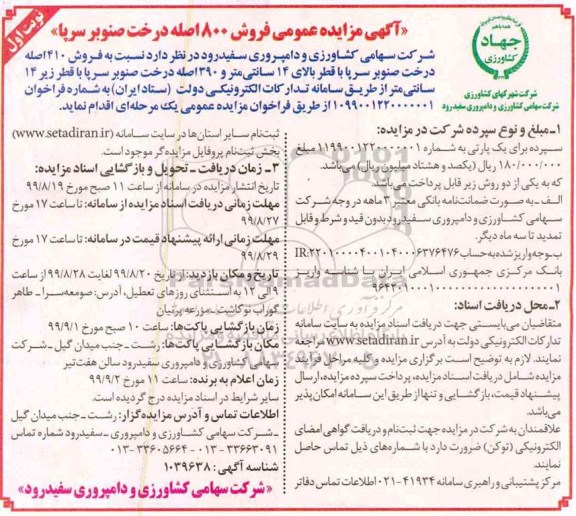 نوبت اول
«آگهی مزایده عمومی فروش ۸۰۰ اصله درخت صنوبر سرپا»
جهاد
کشاورزی
شرکت شهرکهای کشاورزی
شرکت سهامی کشاورزی و دامپروری سفیدرود
شرکت سهامی کشاورزی و دامپروری سفیدرود در نظر دارد نسبت به فروش ۴۱۰ اصله
درخت صنوبر سرپا با قطر بالای ۱۴ سانتی‌متر و ۳۹۰ اصله درخت صنوبر سرپا با قطر زیر ۱۴
سانتی‌متر از طریق سامانه تدارکات الکترونیکی دولت (ستاد ایران) به شماره فراخوان
از طریق فراخوان مزایده عمومی یک مرحله‌ای اقدام نماید.
۱ـ مبلغ و نوع سپرده شرکت در مزایده:
سپرده برای یک پارتی به شماره مبلغ
۱۸۰/۰۰۰/۰۰۰ ریال (یکصد و هشتاد میلیون ریال) می‌باشد.
که به یکی از دو روش زیر قابل پرداخت می‌باشد.
الف ـ به صورت ضمانت‌نامه بانکی معتبر ۳ ماهه در وجه شرکت
سهامی کشاورزی و دامپروری سفیدرود بدون قید و شرط و قابل
تمدید تا سه ماه دیگر.
ب ـ وجه واریز شده به حساب
بانک مرکزی جمهوری اسلامی ایران با شناسه واریز
۲ـ محل دریافت اسناد:
متقاضیان می‌بایستی جهت دریافت اسناد مزایده به سایت سامانه
تدارکات الکترونیکی دولت به آدرس www.setadiran.ir مراجعه
نمایند. لازم به توضیح است برگزاری مزایده و کلیه مراحل فرآیند
مزایده شامل دریافت اسناد مزایده، پرداخت سپرده مزایده، ارسال
پیشنهاد قیمت، بازگشایی و تنها از طریق این سامانه امکان پذیر
می‌باشد.
علاقمندان به شرکت در مزایده جهت ثبت‌نام و دریافت گواهی امضای
الکترونیکی (توکن) ضرورت دارد با شماره‌های ذیل تماس حاصل
نمایند
مرکز پشتیبانی و راهبری سامانه ۴۱۹۳۴-۰۲۱ اطلاعات تماس دفاتر
ثبت‌نام سایر استان‌ها در سایت سامانه (www.setadiran.ir)
بخش ثبت‌نام پروفایل مزایده‌گر موجود است.
۳ـ زمان دریافت ـ تحویل و بازگشایی اسناد مزایده:
تاریخ انتشار مزایده در سامانه از ساعت ۱۱ صبح مورخ ۹۹/۸/۱۹
مهلت زمانی دریافت اسناد مزایده از سامانه: تا ساعت ۱۷ مورخ
۹۹/۸/۲۷
مهلت زمانی ارائه پیشنهاد قیمت در سامانه: تا ساعت ۱۷ مورخ
۹۹/۸/۲۹
تاریخ و مکان بازدید: از تاریخ ۹۹/۸/۲۰ لغایت ۹۹/۸/۲۸ از ساعت
۹ الی ۱۲ به استثنای روزهای تعطیل، آدرس: صومعه‌سرا ـ طاهر
گوراب نوکاشت ـ مزرعه پرتیان
زمان بازگشایی پاکت‌ها: ساعت ۱۰ صبح مورخ ۹۹/۹/۱
مکان بازگشایی پاکت‌ها: رشت ـ جنب میدان گیل ـ شرکت
سهامی کشاورزی و دامپروری سفیدرود سالن هفت تیر
زمان اعلام به برنده: ساعت ۱۱ صبح مورخ ۹۹/۹/۲
سایر شرایط در اسناد مزایده درج گردیده است.
اطلاعات تماس و آدرس مزایده‌گزار: رشت ـ جنب میدان گیل
ـ شرکت سهامی کشاورزی و دامپروری ـ سفیدرود شماره تماس
۰۱۳-۳۳۶۶۳۰۹۱ ۰۱۳-۳۳۶۰۵۶۶۴
شناسه آگهی: ۱۰۳۹۶۳۸
«شرکت سهامی کشاورزی و دامپروری سفیدرود»